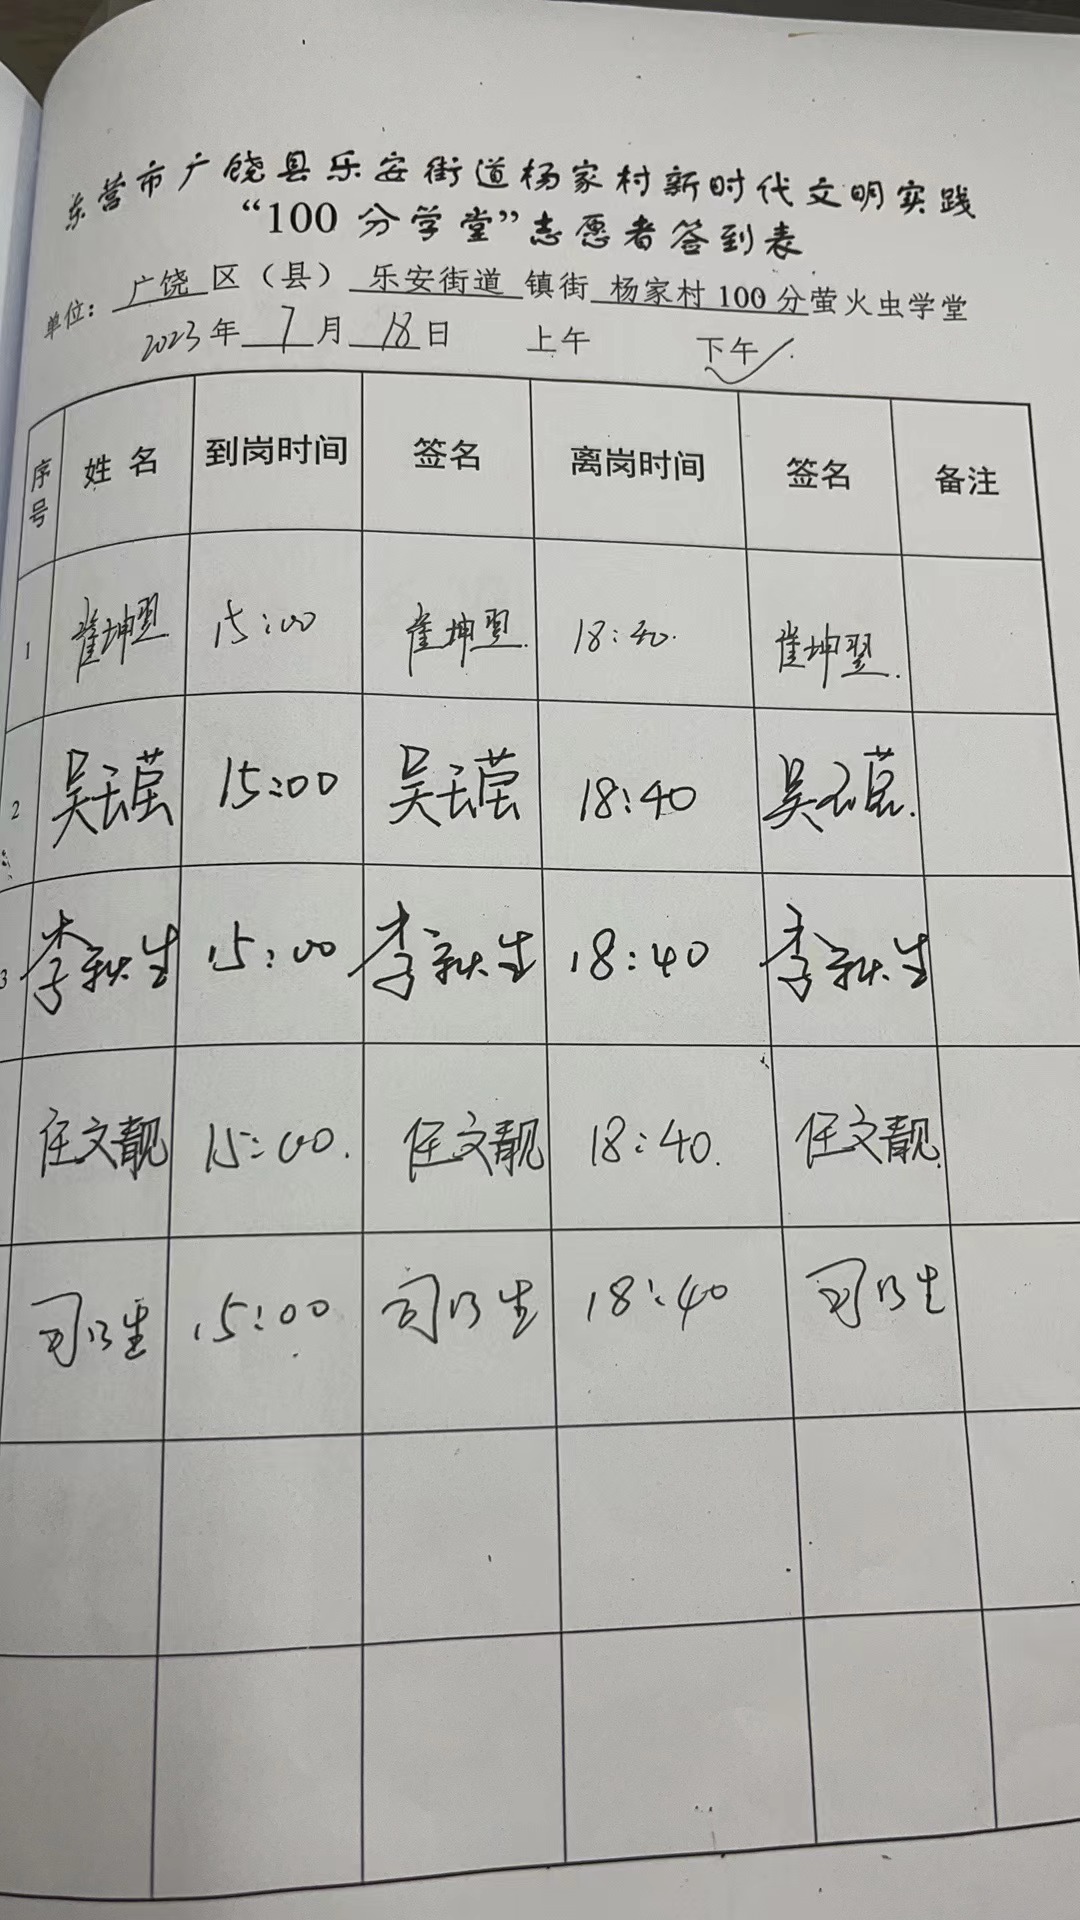 东营市广饶县乐安街道杨家村新时代文明实践
“100分学堂”志愿者签到表
单位：广饶区（县）乐安街道镇街杨家村100分萤火虫学堂
2023年7月18日 上午 下午✓
序号 姓名 到岗时间 签名 离岗时间 签名 备注
1 崔坤翌 15:00 崔坤翌 18:40 崔坤翌
2 吴云萤 15:00 吴云萤 18:40 吴云萤
3 李秋生 15:00 李秋生 18:40 李秋生
任文靓 15:00 任文靓 18:40 任文靓
15:00 18:40